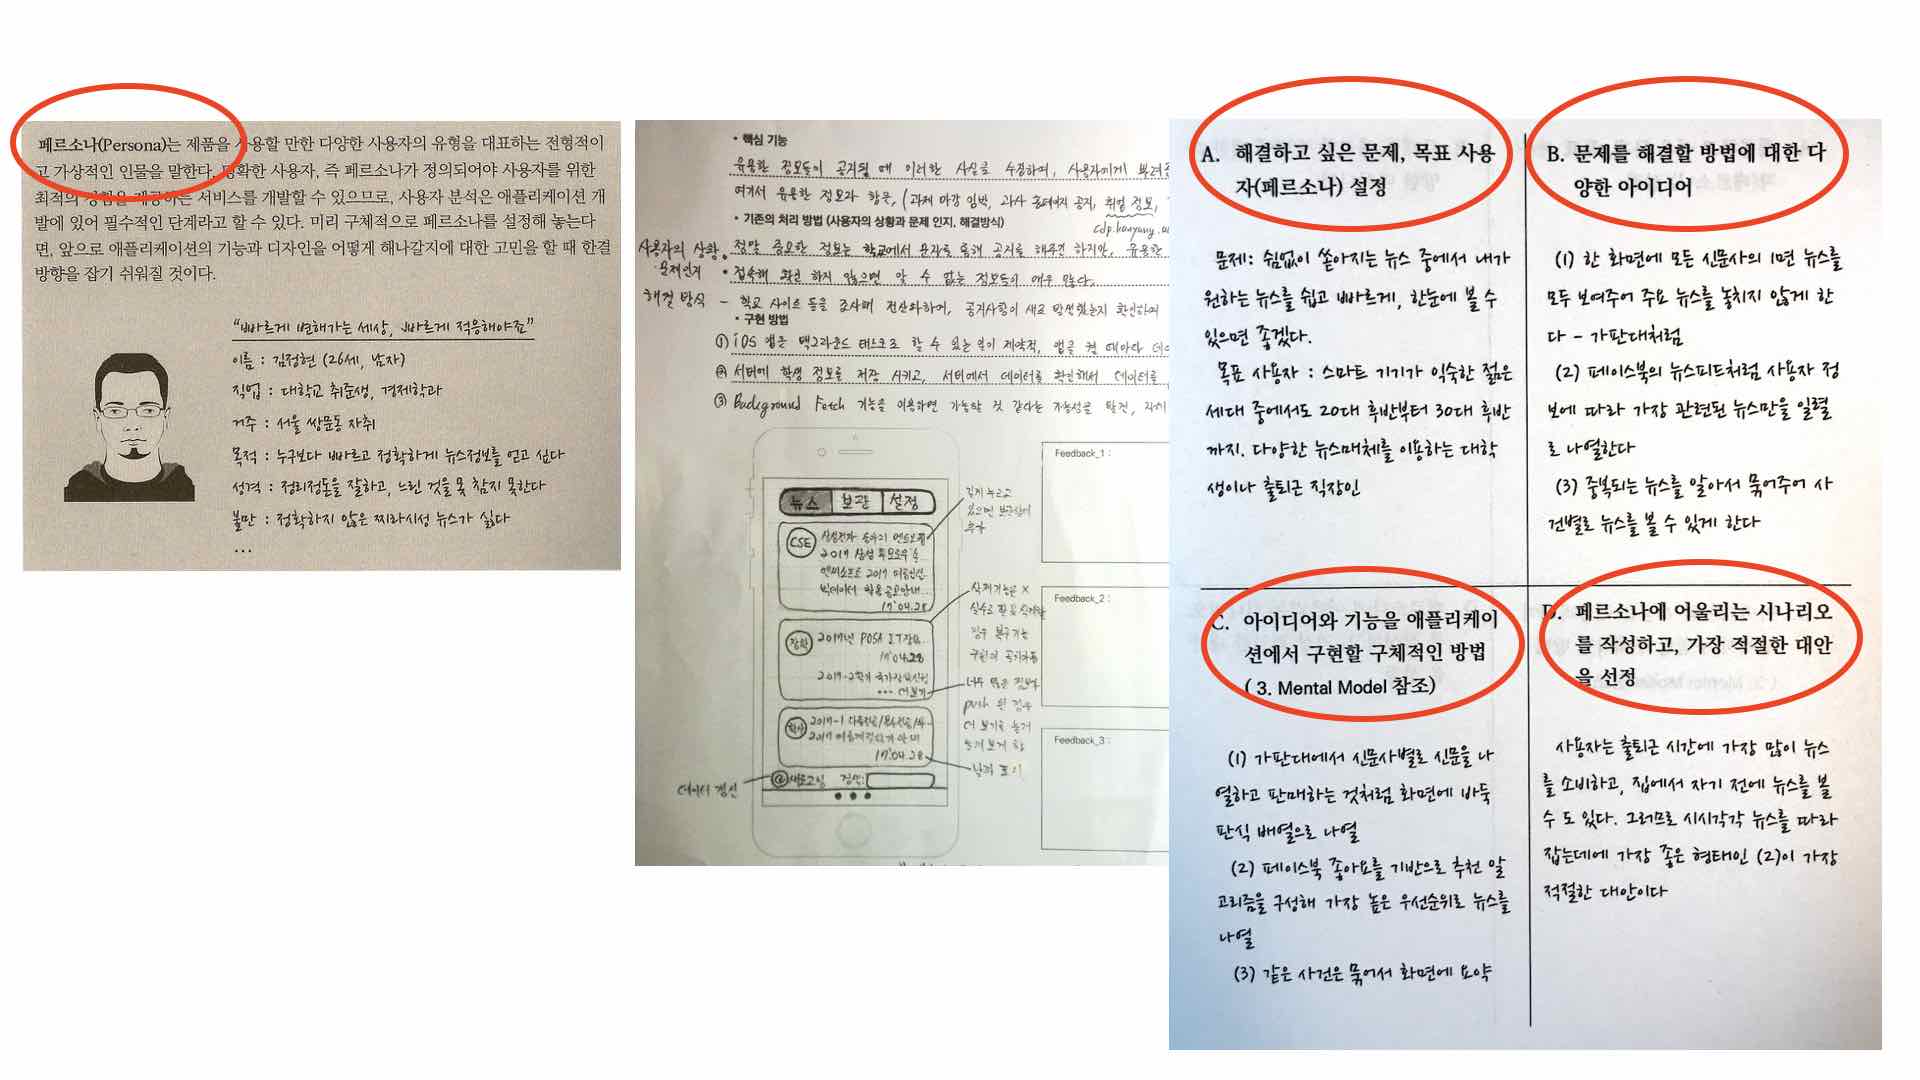 페르소나(Persona)는 제품을 사용할 만한 다양한 사용자의 유형을 대표하는 전형적이
고 가상적인 인물을 말한다. 명확한 사용자, 즉 페르소나가 정의되어야 사용자를 위한
최적의 경험을 제공하는 서비스를 개발할 수 있으므로, 사용자 분석은 애플리케이션 개
발에 있어 필수적인 단계라고 할 수 있다. 미리 구체적으로 페르소나를 설정해 놓는다
면, 앞으로 애플리케이션의 기능과 디자인을 어떻게 해나갈지에 대한 고민을 할 때 한결
방향을 잡기 쉬워질 것이다.
“빠르게 변해가는 세상, 빠르게 적응해야죠”
이름 : 김정현 (26세, 남자)
직업 : 대학교 취준생, 경제학과
거주 : 서울 쌍문동 자취
목적 : 누구보다 빠르고 정확하게 뉴스정보를 얻고 싶다
성격 : 정리정돈을 잘하고, 느린 것을 못 참지 못한다
불만 : 정확하지 않은 찌라시성 뉴스가 싫다
...
• 핵심 기능
유용한 정보들이 공지될 때 이러한 사실을 수집하여, 사용자에게 보여준
여기서 유용한 정보과 항목, (과제 마감 임박, 과사 홈페이지 공지, 취업 정보,
• 기존의 처리 방법 (사용자의 상황과 문제 인지, 해결방식)
cdp.hanyang.ac
사용자의 상황, • 정말 중요한 정보는 학교에서 문자를 통해 공지를 해주긴 하지만, 유용한
문제인지 • 접속해 확인 하지 않으면 알 수 없는 정보들이 매우 많다.
해결 방식 – 학교 사이트 등을 조사해 전산화하여, 공지사항이 새로 발생했는지 확인하여
• 구현 방법
① iOS 앱은 백그라운드 태스크로 할 수 있는 일이 제약적, 앱을 켤 때마다
② 서버에 학생 정보를 저장 시키고, 서버에서 데이터를 확인해서 데이터를
③ Background Fetch 기능을 이용하면 가능할 것 같다는 가능성을 발견,
뉴스 보관 설정
길게 누르고
있으면 보관함에
추가
CSE
2017
17.04.28
삭제기능은 X
장학 2017년 POSA IT장학..
17.04.28
... 더보기
push 된 경우
더 보기로
학사 2017-1
17.04.28
날짜 표시
데이터 갱신
새로고침 검색:
Feedback_1 :
Feedback_2 :
Feedback_3 :
A. 해결하고 싶은 문제, 목표 사용
자(페르소나) 설정
문제: 쉼없이 쏟아지는 뉴스 중에서 내가
원하는 뉴스를 쉽고 빠르게, 한눈에 볼 수
있으면 좋겠다.
목표 사용자 : 스마트 기기가 익숙한 젊은
세대 중에서도 20대 후반부터 30대 후반
까지. 다양한 뉴스매체를 이용하는 대학
생이나 출퇴근 직장인
B. 문제를 해결할 방법에 대한 다
양한 아이디어
(1) 한 화면에 모든 신문사의 1면 뉴스를
모두 보여주어 주요 뉴스를 놓치지 않게 한
다 - 가판대처럼
(2) 페이스북의 뉴스피드처럼 사용자 정
보에 따라 가장 관련된 뉴스만을 일렬
로 나열한다
(3) 중복되는 뉴스를 알아서 묶어주어 사
건별로 뉴스를 볼 수 있게 한다
C. 아이디어와 기능을 애플리케이
션에서 구현할 구체적인 방법
( 3. Mental Model 참조)
(1) 가판대에서 신문사별로 신문을 나
열하고 판매하는 것처럼 화면에 바둑
판식 배열으로 나열
(2) 페이스북 좋아요를 기반으로 추천 알
고리즘을 구성해 가장 높은 우선순위로 뉴스를
나열
(3) 같은 사건은 묶어서 화면에 요약
D. 페르소나에 어울리는 시나리오
를 작성하고, 가장 적절한 대안
을 선정
사용자는 출퇴근 시간에 가장 많이 뉴스
를 소비하고, 집에서 자기 전에 뉴스를 볼
수 도 있다. 그러므로 시시각각 뉴스를 따라
잡는데에 가장 좋은 형태인 (2)이 가장
적절한 대안이다